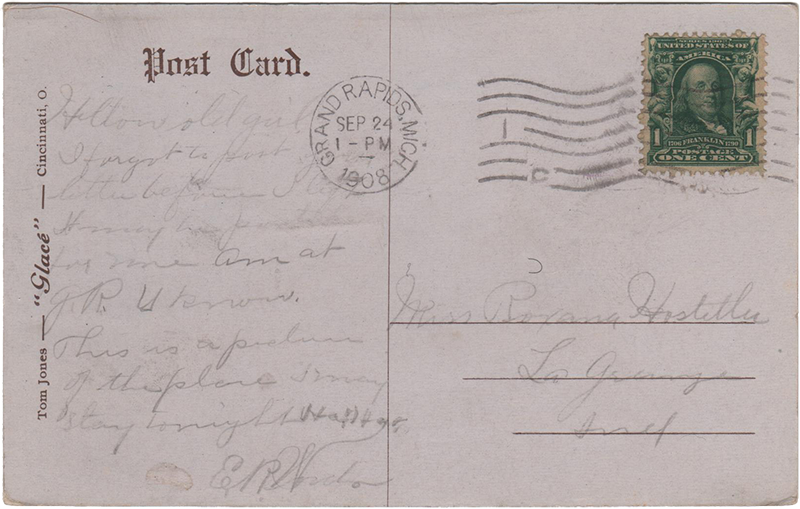 Post Card.
Tom Jones — "Glacé" — Cincinnati, O.
Hellow old girl
I forgot to post
letter before I
It may be
for me am at
G.R. U know.
This is a picture
of the place I may
stay tonight
E.R.
GRAND RAPIDS, MICH.
SEP 24
1 - PM
1908
1
C
SERIES 1902
UNITED STATES OF
AMERICA
1706 FRANKLIN 1790
POSTAGE
1 1
ONE CENT
Miss Roxana Hostetler
La Grange
Ind